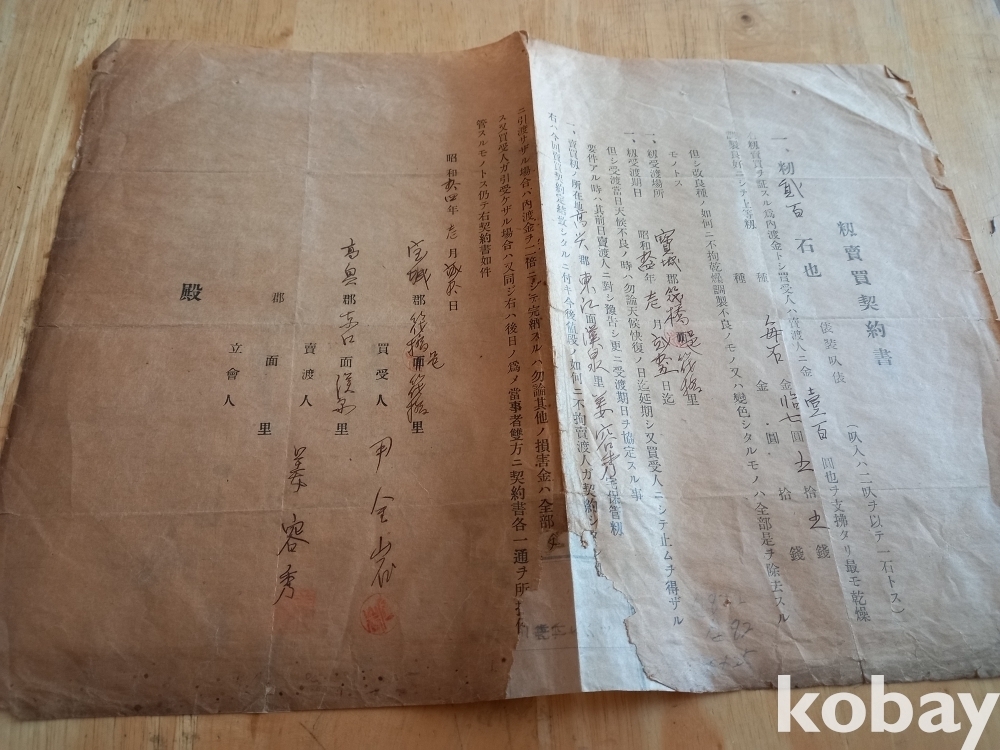 籾賣買契約書
一、籾貳百石也 俵装叺俵 (叺入ハ二叺ヲ以テ一石トス)
籾賣買ヲ証スル為内渡金トシ買受人ハ賣渡人ニ金壹百圓也ヲ支拂タリ最モ乾燥
調製良好ニシテ上等籾
種 每石 金 七圓五拾五錢
種 金 圓 拾 錢
但シ改良種ノ如何ニ不拘乾燥調製不良ノモノ又ハ變色シタルモノハ全部是ヲ除去スル
モノトス
一、籾受渡場所 寶城郡筏橋 筏橋里
一、籾受渡期日 昭和 年 月 日迄
但シ受渡當日天候不良ノ時ハ勿論天候快復ノ日迄延期シ又買受人ニシテ止ムヲ得ザル
要件アル時ハ其前日賣渡人ニ對シ豫告シ更ニ受渡期日ヲ協定スル事
一、賣買籾ノ所在地高興郡東江面漢泉里姜容秀 保管籾
右ハ今回賣買契約締結シタルニ付キ今後値段ノ如何ニ不拘賣渡人ガ契約
ニ引渡サザル場合ハ内渡金ヲ二倍ニシテ完納スルハ勿論其他ノ損害金ハ全部
ス又買受人ガ引受ケザル場合ハ又同ジ右ハ後日ノ為メ當事者雙方ニ契約書各一通ヲ所持保
管スルモノトス仍テ右契約書如件
昭和 年 月 日
宝城郡筏橋 筏橋里
買受人
高興郡 面漢泉里
賣渡人 姜容秀
郡 面 里
立會人
殿
kobay